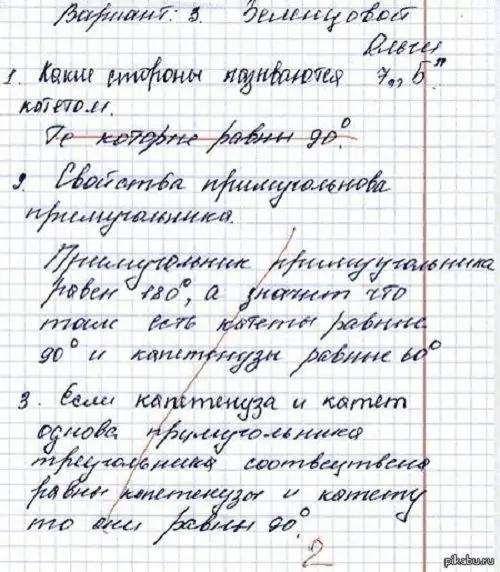 Вариант: 3. Зеленцовой
Ольги
1. Какие стороны называются 7 „Б"
котетом.
Те которые равны 90°.
2. Свойства примугольнова
примугольника.
Примугольник примугугольника
равен 180°, а значит что
там есть котеты равные
90° и капетенузы равные 60°
3. Если капетенуза и катет
однова примугольника
треугольника соотвецтвена
равны капетенузы и катету
то они равны 90°.
2
pikabu.ru